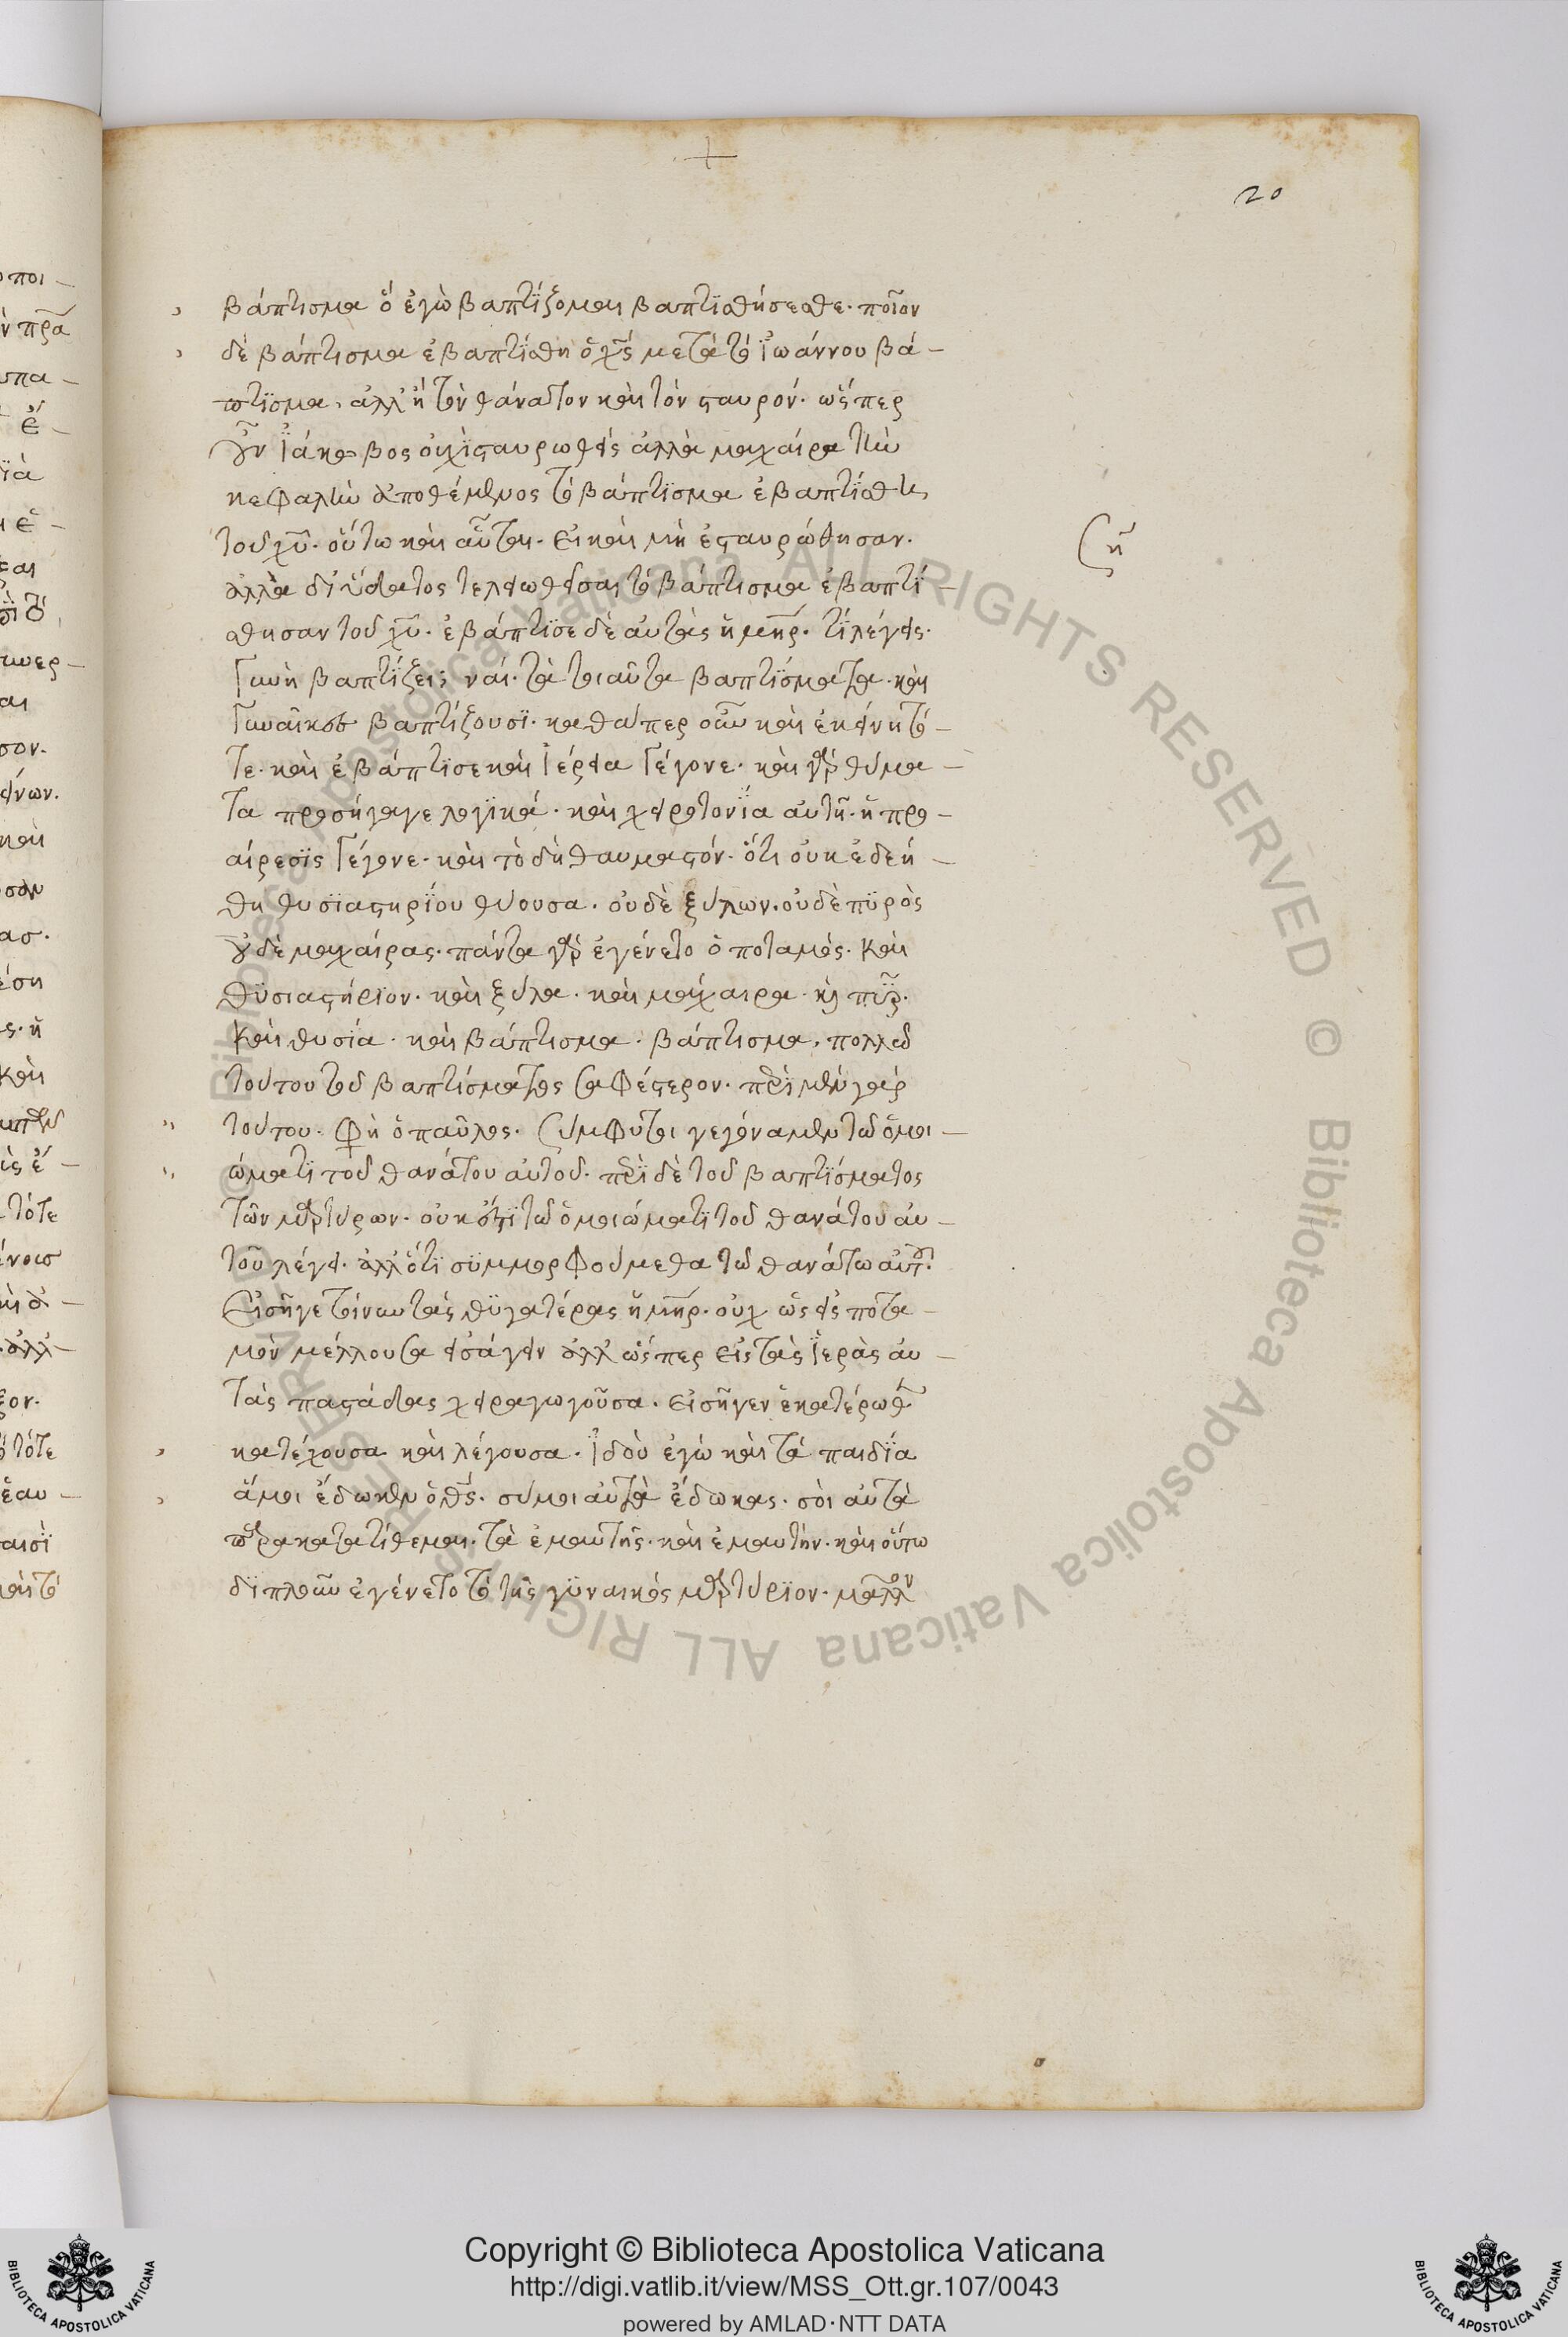 20
βάπτισμα ὅ ἐγὼ βαπτίζομαι βαπτισθήσεσθε· ποῖον
δὲ βάπτισμα ἐβαπτίσθη ὁ χς μετὰ τὸ ἰωάννου βά-
πτισμα, ἀλλ' ἢ τὸν θάνατον καὶ τὸν σταυρόν· ὥσπερ
οὖν ἰάκωβος οὐχὶ σταυρωθεὶς ἀλλὰ μαχαίρα τὴν
κεφαλὴν ἀποθέμενος τὸ βάπτισμα ἐβαπτίσθη
τοῦ χυ· οὕτω καὶ αὗται· εἰ καὶ μὴ ἐσταυρώθησαν·
ἀλλὰ δι' ὕδατος τελειωθεῖσαι τὸ βάπτισμα ἐβαπτί-
σθησαν τοῦ χυ· ἐβάπτισε δὲ αὐτὰς ἡ μηρ· τί λέγεις·
Γυνὴ βαπτίζει; ναί· τὰ τοιαῦτα βαπτίσματα· καὶ
Γυναῖκες βαπτίζουσι· καθάπερ οὖν καὶ ἐκείνη τό-
τε· καὶ ἐβάπτισε καὶ ἱέρεια Γέγονε· καὶ γὰρ θύμα-
τα προσήγαγε λογικά· καὶ χειροτονία αὐτῆ· ἡ προ-
αίρεσις Γέγονε· καὶ τὸ δὴ θαυμαστόν· ὅτι οὐκ ἐδεή-
θη θυσιαστηρίου θύουσα· οὐδὲ ξύλων· οὐδὲ πυρὸς
οὐδὲ μαχαίρας· πάντα γὰρ ἐγένετο ὁ ποταμός· καὶ
θυσιαστήριον· καὶ ξύλα· καὶ μάχαιρα· κὶ πῦρ·
καὶ θυσία· καὶ βάπτισμα· βάπτισμα, πολλῶ
τούτου τοῦ βαπτίσματος σαφέστερον· περὶ μὲν γὰρ
τούτου· φη ὁ παῦλος· Σύμφυτοι γεγόναμεν τῶ ὁμοι-
ώματι τοῦ θανάτου αὐτοῦ· περὶ δὲ τοῦ βαπτίσματος
τῶν μαρτύρων· οὐκ ἔτι τῶ ὁμοιώματι τοῦ θανάτου αὐ-
τοῦ λέγει· ἀλλ' ὅτι συμμορφούμεθα τῶ θανάτω αὐτοῦ·
Εἰσῆγε τοίνυν τὰς θυγατέρας ἡ μηρ· οὐχ ὡς εἰς ποτα-
μὸν μέλλουσα εἰσάγειν ἀλλ' ὥσπερ εἰς τὰς ἱερὰς αὐ-
τὰς παστάδας χειραγωγοῦσα· εἰσῆγεν ἑκατέρωθεν
κατέχουσα καὶ λέγουσα· ἰδοὺ ἐγὼ καὶ τὰ παιδία
ἅ μοι ἔδωκεν ὁ θς· σύ μοι αὐτὰ ἔδωκας· σοὶ αὐτὰ
παρακατατίθεμαι· τὰ ἐμαυτῆς· καὶ ἐμαυτήν· καὶ οὕτω
διπλοῦν ἐγένετο τὸ τῆς γυναικὸς μαρτύριον· μᾶλλον
Copyright © Biblioteca Apostolica Vaticana
http://digi.vatlib.it/view/MSS_Ott.gr.107/0043
powered by AMLAD·NTT DATA